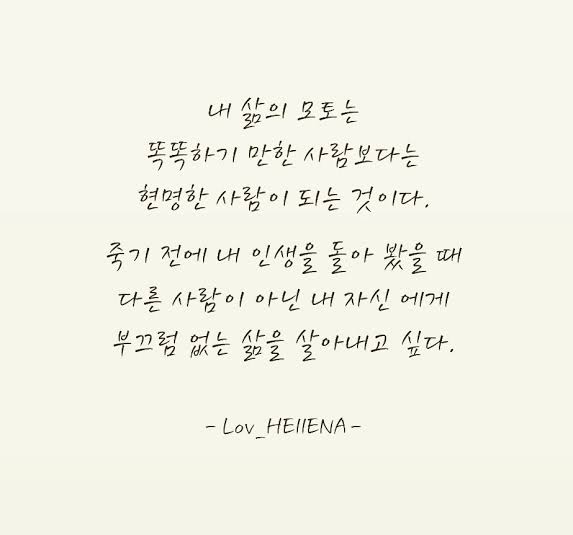 내 삶의 모토는
똑똑하기 만한 사람보다는
현명한 사람이 되는 것이다.
죽기 전에 내 인생을 돌아 봤을 때
다른 사람이 아닌 내 자신 에게
부끄럼 없는 삶을 살아내고 싶다.
- Lov_HEllENA -